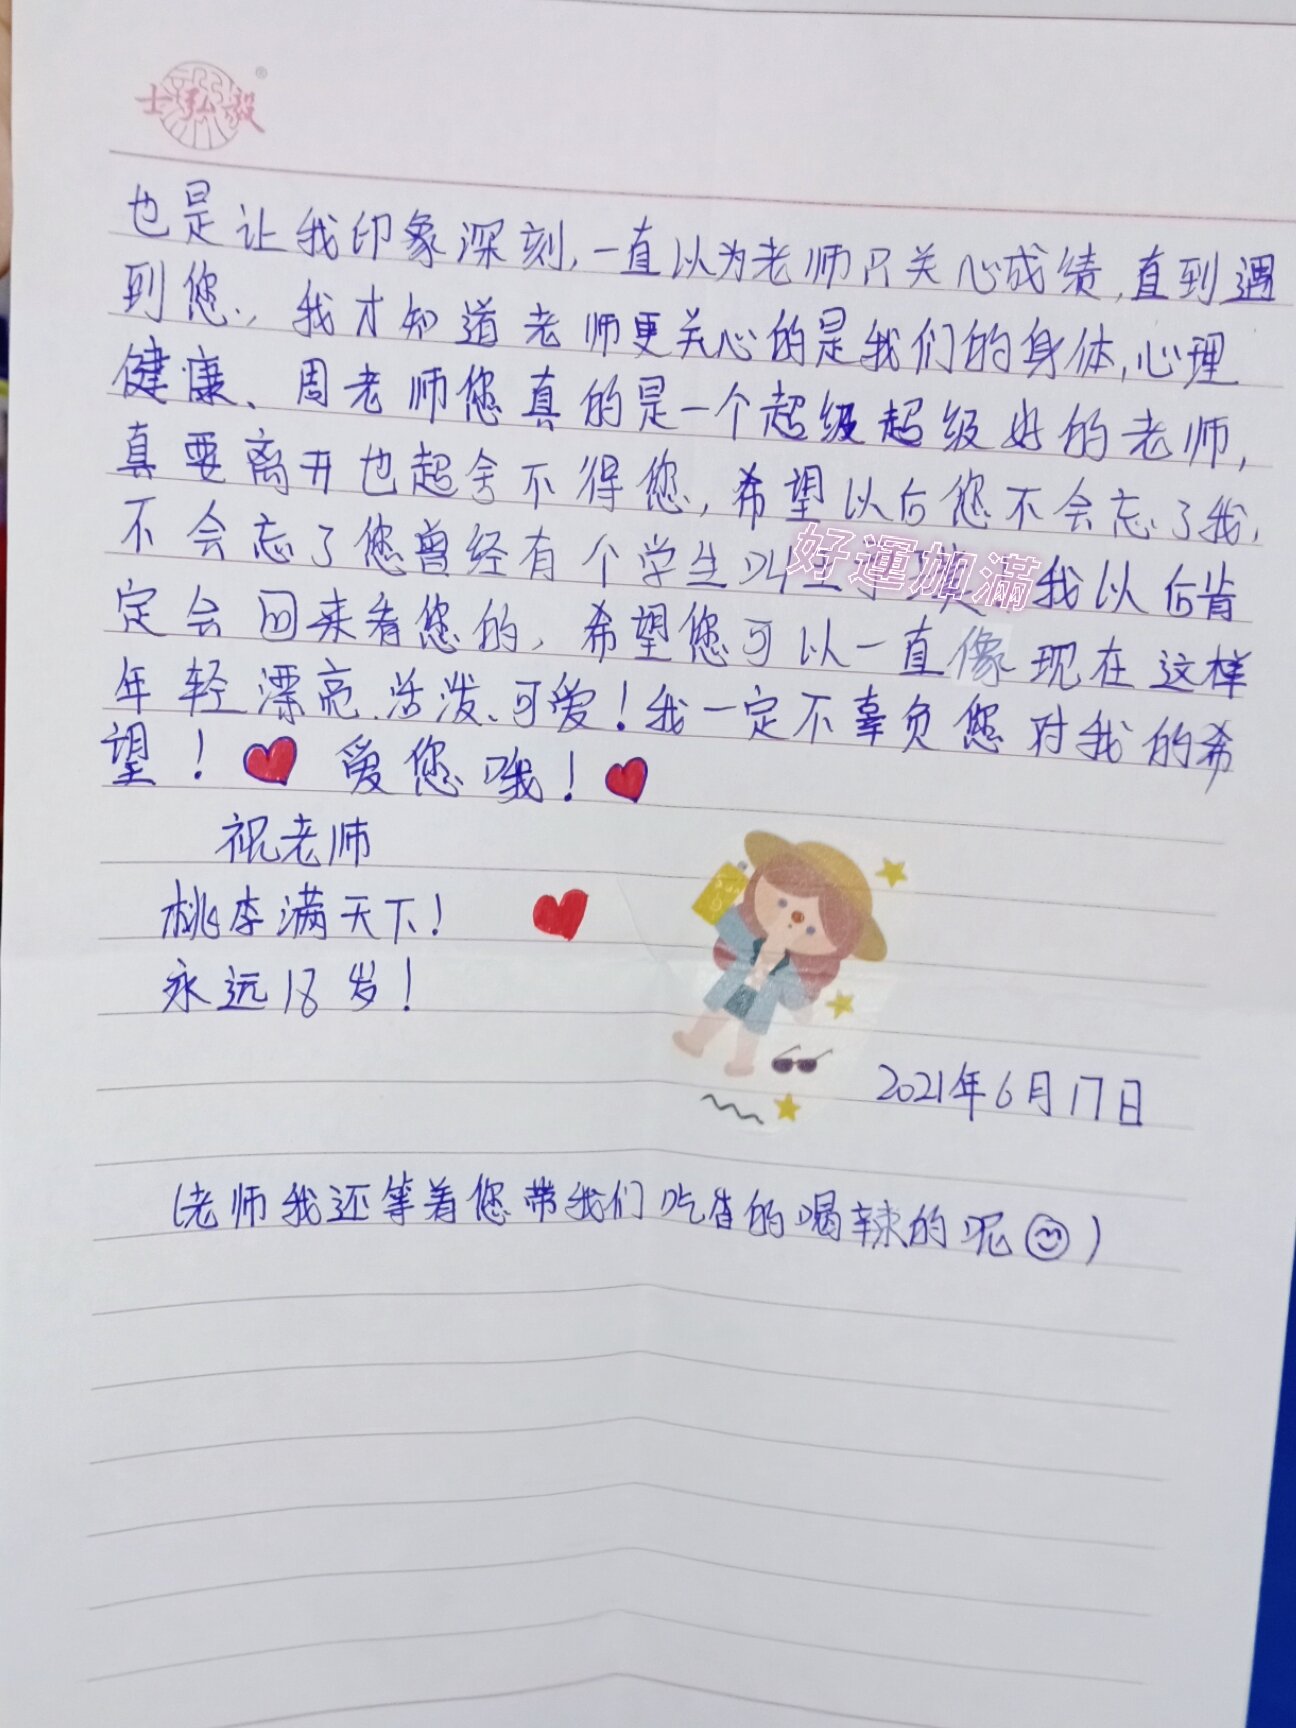 士弘毅
也是让我印象深刻,一直以为老师只关心成绩,直到遇
到您,我才知道老师更关心的是我们的身体,心理
健康、周老师您真的是一个超级超级好的老师,
真要离开也超舍不得您,希望以后您不会忘了我,
不会忘了您曾经有个学生叫 我以后肯
好運加滿
定会回来看您的,希望您可以一直像现在这样
年轻漂亮、活泼、可爱!我一定不辜负您对我的希
望! 爱您哦!
祝老师
桃李满天下!
永远18岁!
2021年6月17日
(老师我还等着您带我们吃香的喝辣的呢)